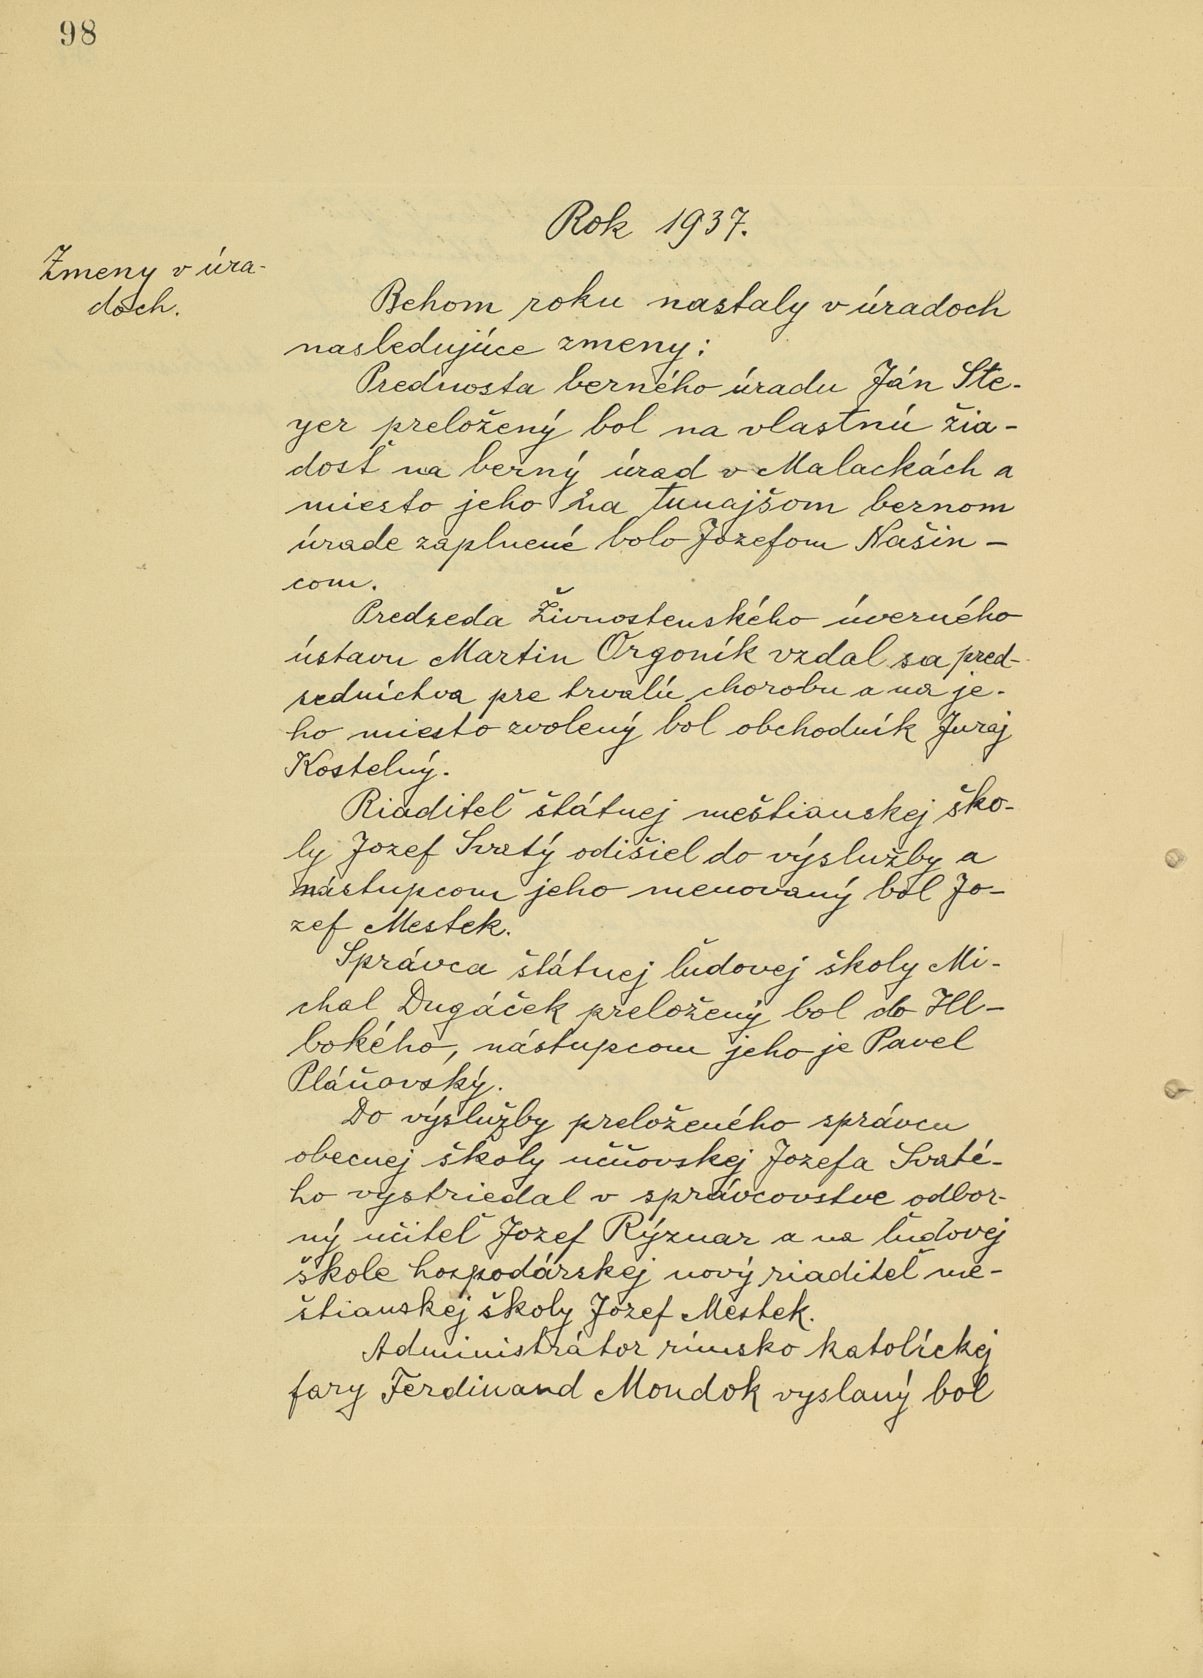 98
Rok 1937.
Zmeny v úra-
doch.
Behom roku nastaly v úradoch
nasledujúce zmeny:
Prednosta berného úradu Ján Ste-
yer preložený bol na vlastnú žia-
dosť na berný úrad v Malackách a
miesto jeho na tunajšom bernom
úrade zaplnené bolo Jozefom Našin-
com.
Predseda Živnostenského úverného
ústavu Martin Orgoník vzdal sa pred-
sedníctva pre trvalú chorobu a na je-
ho miesto zvolený bol obchodník Juraj
Kostelný.
Riaditeľ štátnej meštianskej ško-
ly Jozef Svatý odišiel do výslužby a
nástupcom jeho menovaný bol Jo-
zef Mestek.
Správca štátnej ľudovej školy Mi-
chal Dugáček preložený bol do Hl-
bokého, nástupcom jeho je Pavel
Pláňovský.
Do výslužby preloženého správcu
obecnej školy učňovskej Jozefa Svaté-
ho vystriedal v správcovstve odbor-
ný učiteľ Jozef Rýznar a na ľudovej
škole hospodárskej nový riaditeľ me-
štianskej školy Jozef Mestek.
Administrátor rímsko katolíckej
fary Ferdinand Mondok vyslaný bol